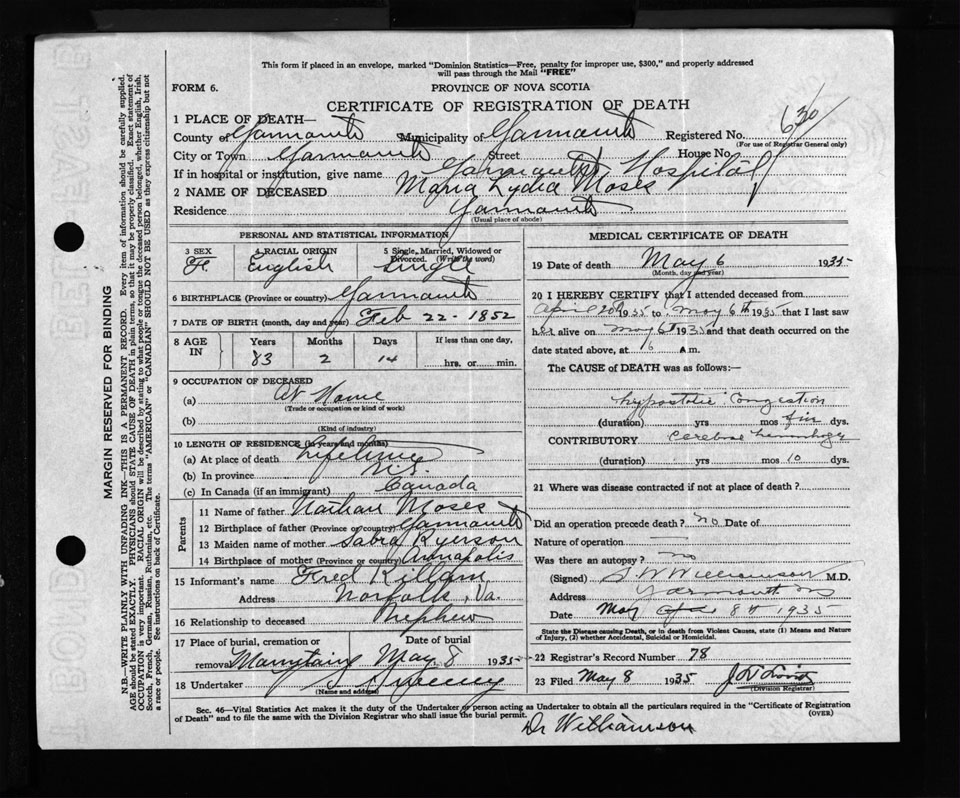 This form if placed in an envelope, marked "Dominion Statistics—Free, penalty for improper use, $300," and properly addressed
will pass through the Mail "FREE"
FORM 6.
PROVINCE OF NOVA SCOTIA
CERTIFICATE OF REGISTRATION OF DEATH
1 PLACE OF DEATH—
County of Yarmouth Municipality of Yarmouth Registered No. 630
(For use of Registrar General only)
City or Town Yarmouth Street House No.
If in hospital or institution, give name Yarmouth Hospital
2 NAME OF DECEASED Maria Lydia Moses
Residence Yarmouth
(Usual place of abode)
PERSONAL AND STATISTICAL INFORMATION
3 SEX 4 RACIAL ORIGIN 5 Single, Married, Widowed or
Divorced. (Write the word)
F. English Single
6 BIRTHPLACE (Province or country) Yarmouth
7 DATE OF BIRTH (month, day and year) Feb 22 - 1852
8 AGE IN Years Months Days If less than one day,
83 2 14 hrs. or min.
9 OCCUPATION OF DECEASED
(a) At Home
(Trade or occupation or kind of work)
(b)
(Kind of industry)
10 LENGTH OF RESIDENCE (in years and months)
(a) At place of death Lifetime
(b) In province N.S.
(c) In Canada (if an immigrant) Canada
Parents
11 Name of father Nathan Moses
12 Birthplace of father (Province or country) Yarmouth
13 Maiden name of mother Sabra Ryerson
14 Birthplace of mother (Province or country) Annapolis
15 Informant's name Fred Killam
Address Norfolk, Va.
16 Relationship to deceased Nephew
17 Place of burial, cremation or Date of burial
removal May 8 1935
18 Undertaker Sweeny
(Name and address)
MEDICAL CERTIFICATE OF DEATH
19 Date of death May 6 1935
(Month, day and year)
20 I HEREBY CERTIFY that I attended deceased from
April 20th 1935 to May 6th 1935 that I last saw
her alive on May 6th 1935 and that death occurred on the
date stated above, at 6 A.m.
The CAUSE of DEATH was as follows:—
Hypostatic Congestion
(duration) yrs mos five dys.
CONTRIBUTORY Cerebral hemorrhage
(duration) yrs mos 10 dys.
21 Where was disease contracted if not at place of death?
Did an operation precede death? no Date of
Nature of operation —
Was there an autopsy? no
(Signed) S. W. Williamson M.D.
Address Yarmouth NS
Date May 8th 1935
State the Disease causing Death, or in death from Violent Causes, state (1) Means and Nature
of Injury, (2) whether Accidental, Suicidal or Homicidal.
22 Registrar's Record Number 78
23 Filed May 8 1935
(Division Registrar)
Sec. 46—Vital Statistics Act makes it the duty of the Undertaker or person acting as Undertaker to obtain all the particulars required in the "Certificate of Registration
of Death" and to file the same with the Division Registrar who shall issue the burial permit.
(OVER)
Dr Williamson
MARGIN RESERVED FOR BINDING
N.B—WRITE PLAINLY WITH UNFADING INK—THIS IS A PERMANENT RECORD. Every item of information should be carefully supplied.
AGE should be stated EXACTLY. PHYSICIANS should STATE CAUSE OF DEATH in plain terms, so that it may be properly classified. Exact statement of
OCCUPATION is very important. RACIAL ORIGIN will be described by stating to what people or race tongue the deceased person belonged, whether English, Irish,
Scotch, French, German, Russian, Ruthenian, etc. The terms "AMERICAN" or "CANADIAN" SHOULD NOT BE USED as they express citizenship but not
a race or people. See instructions on back of Certificate.